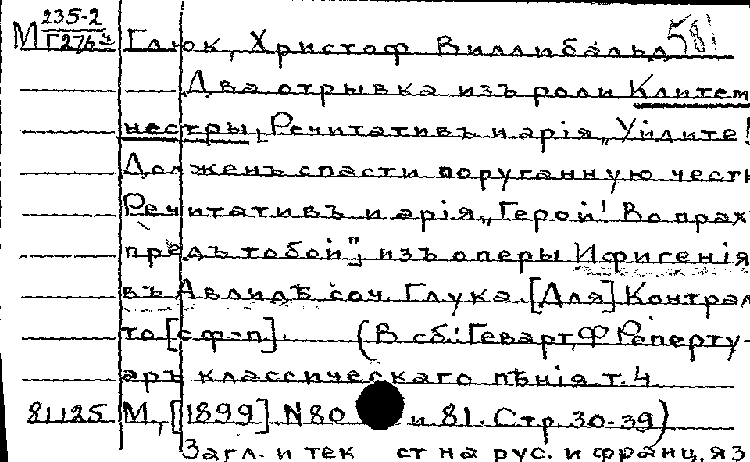 М 235-2
Г276 581
Глюк, Христоф Виллибальд
Два отрывка изъ роли Клитем
нестры, Речитативъ и арія „Уйдите!
Долженъ спасти поруганную честь
Речитативъ и арія „Герой! Во прах
предъ тобой", изъ оперы Ифигенія
въ Авлидѣ соч. Глука. [Для] Контрал
то [с ф-п]. (В сб.: Геварт, Ф Реперту-
аръ классическаго пѣнія т. 4.
81125 М., [1899] N 80 и 81. Стр. 30-39)
Загл. и тек ст на рус. и франц. яз